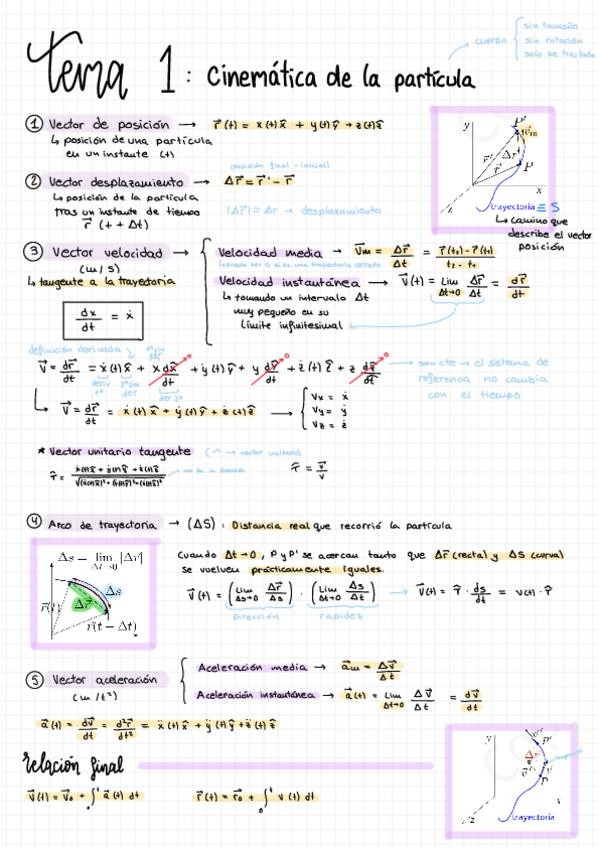 Tema 1: Cinemática de la partícula
cuerpo
sin tamaño
sin rotación
solo se traslada
① Vector de posición → r⃗(t) = x(t)x̂ + y(t)ŷ + z(t)ẑ
↳ posición de una partícula
en un instante (t)
posición final - inicial
② Vector desplazamiento → Δr⃗ = r⃗' - r⃗
↳ posición de la partícula
tras un instante de tiempo
r⃗ (t + Δt)
|Δr⃗| = Δr → desplazamiento
y
P
v⃗m
Δr
r⃗'
r⃗
P'
x
z
trayectoria ≡ S
↳ camino que
describe el vector
posición
③ Vector velocidad →
(m/s)
↳ tangente a la trayectoria
dx/dt = ẋ
Velocidad media → v⃗m = Δr⃗/Δt = (r⃗(t₂) - r⃗(t₁))/(t₂ - t₁)
↳ puede ser 0 si es una trayectoria cerrada
Velocidad instantánea → v⃗(t) = Lim Δt→0 Δr⃗/Δt = dr⃗/dt
↳ tomando un intervalo Δt
muy pequeño en su
límite infinitesimal
definición derivada
v⃗ = dr⃗/dt = ẋ(t)x̂ + x dx̂/dt + ẏ(t)ŷ + y dŷ/dt + ż(t)ẑ + z dẑ/dt
→ son cte → el sistema de
referencia no cambia
con el tiempo
↳ v⃗ = dr⃗/dt = ẋ(t)x̂ + ẏ(t)ŷ + ż(t)ẑ →
Vx = ẋ
Vy = ẏ
Vz = ż
* Vector unitario tangente (^ → vector unitario)
τ̂ = v⃗/v
④ Arco de trayectoria → (ΔS): Distancia real que recorrió la partícula
Δs = lim Δt→0 |Δr|
Δs
Δr⃗
r⃗(t)
r(t - Δt)
Cuando Δt→0, P y P' se acercan tanto que Δr⃗ (recta) y ΔS (curva)
se vuelven prácticamente iguales.
v⃗(t) = (Lim Δs→0 Δr⃗/Δs) · (Lim Δt→0 Δs/Δt) → v⃗(t) = τ̂ · ds/dt = v(t) · τ̂
dirección
rapidez
⑤ Vector aceleración
(m/t²)
Aceleración media → a⃗m = Δv⃗/Δt
Aceleración instantánea → a⃗(t) = Lim Δt→0 Δv⃗/Δt = dv⃗/dt
a⃗(t) = dv⃗/dt = d²r⃗/dt² = ẍ(t)x̂ + ÿ(t)ŷ + z̈(t)ẑ
Relación final
v⃗(t) = v⃗₀ + ∫₀ᵗ a⃗(t) dt
r⃗(t) = r⃗₀ + ∫₀ᵗ v(t) dt
y
P'
P
x
z
trayectoria